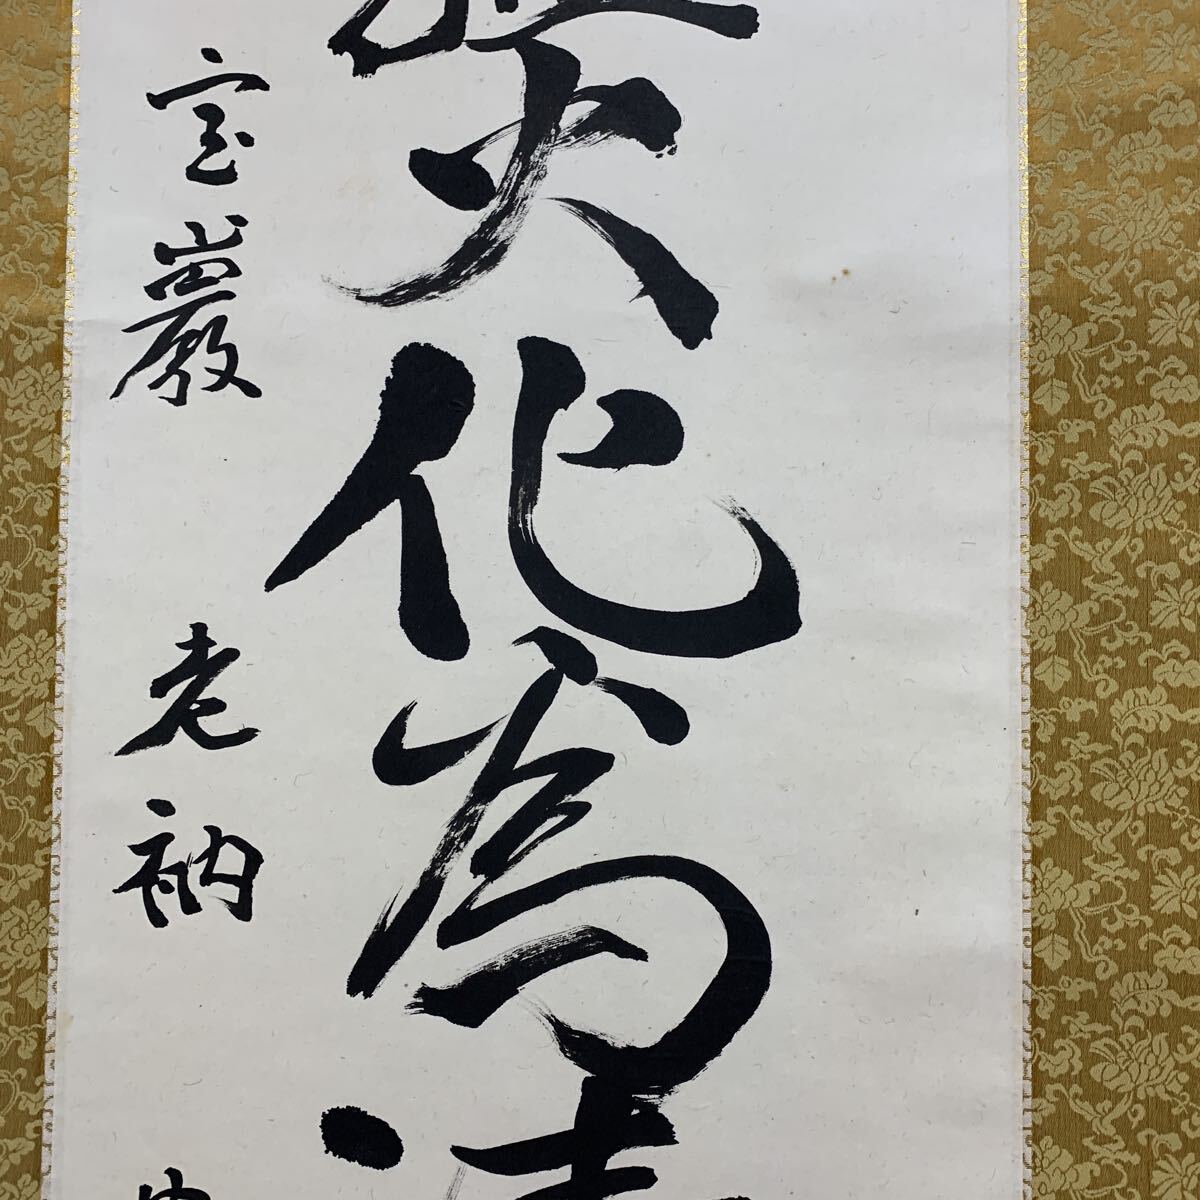 火化為
宝巌老衲